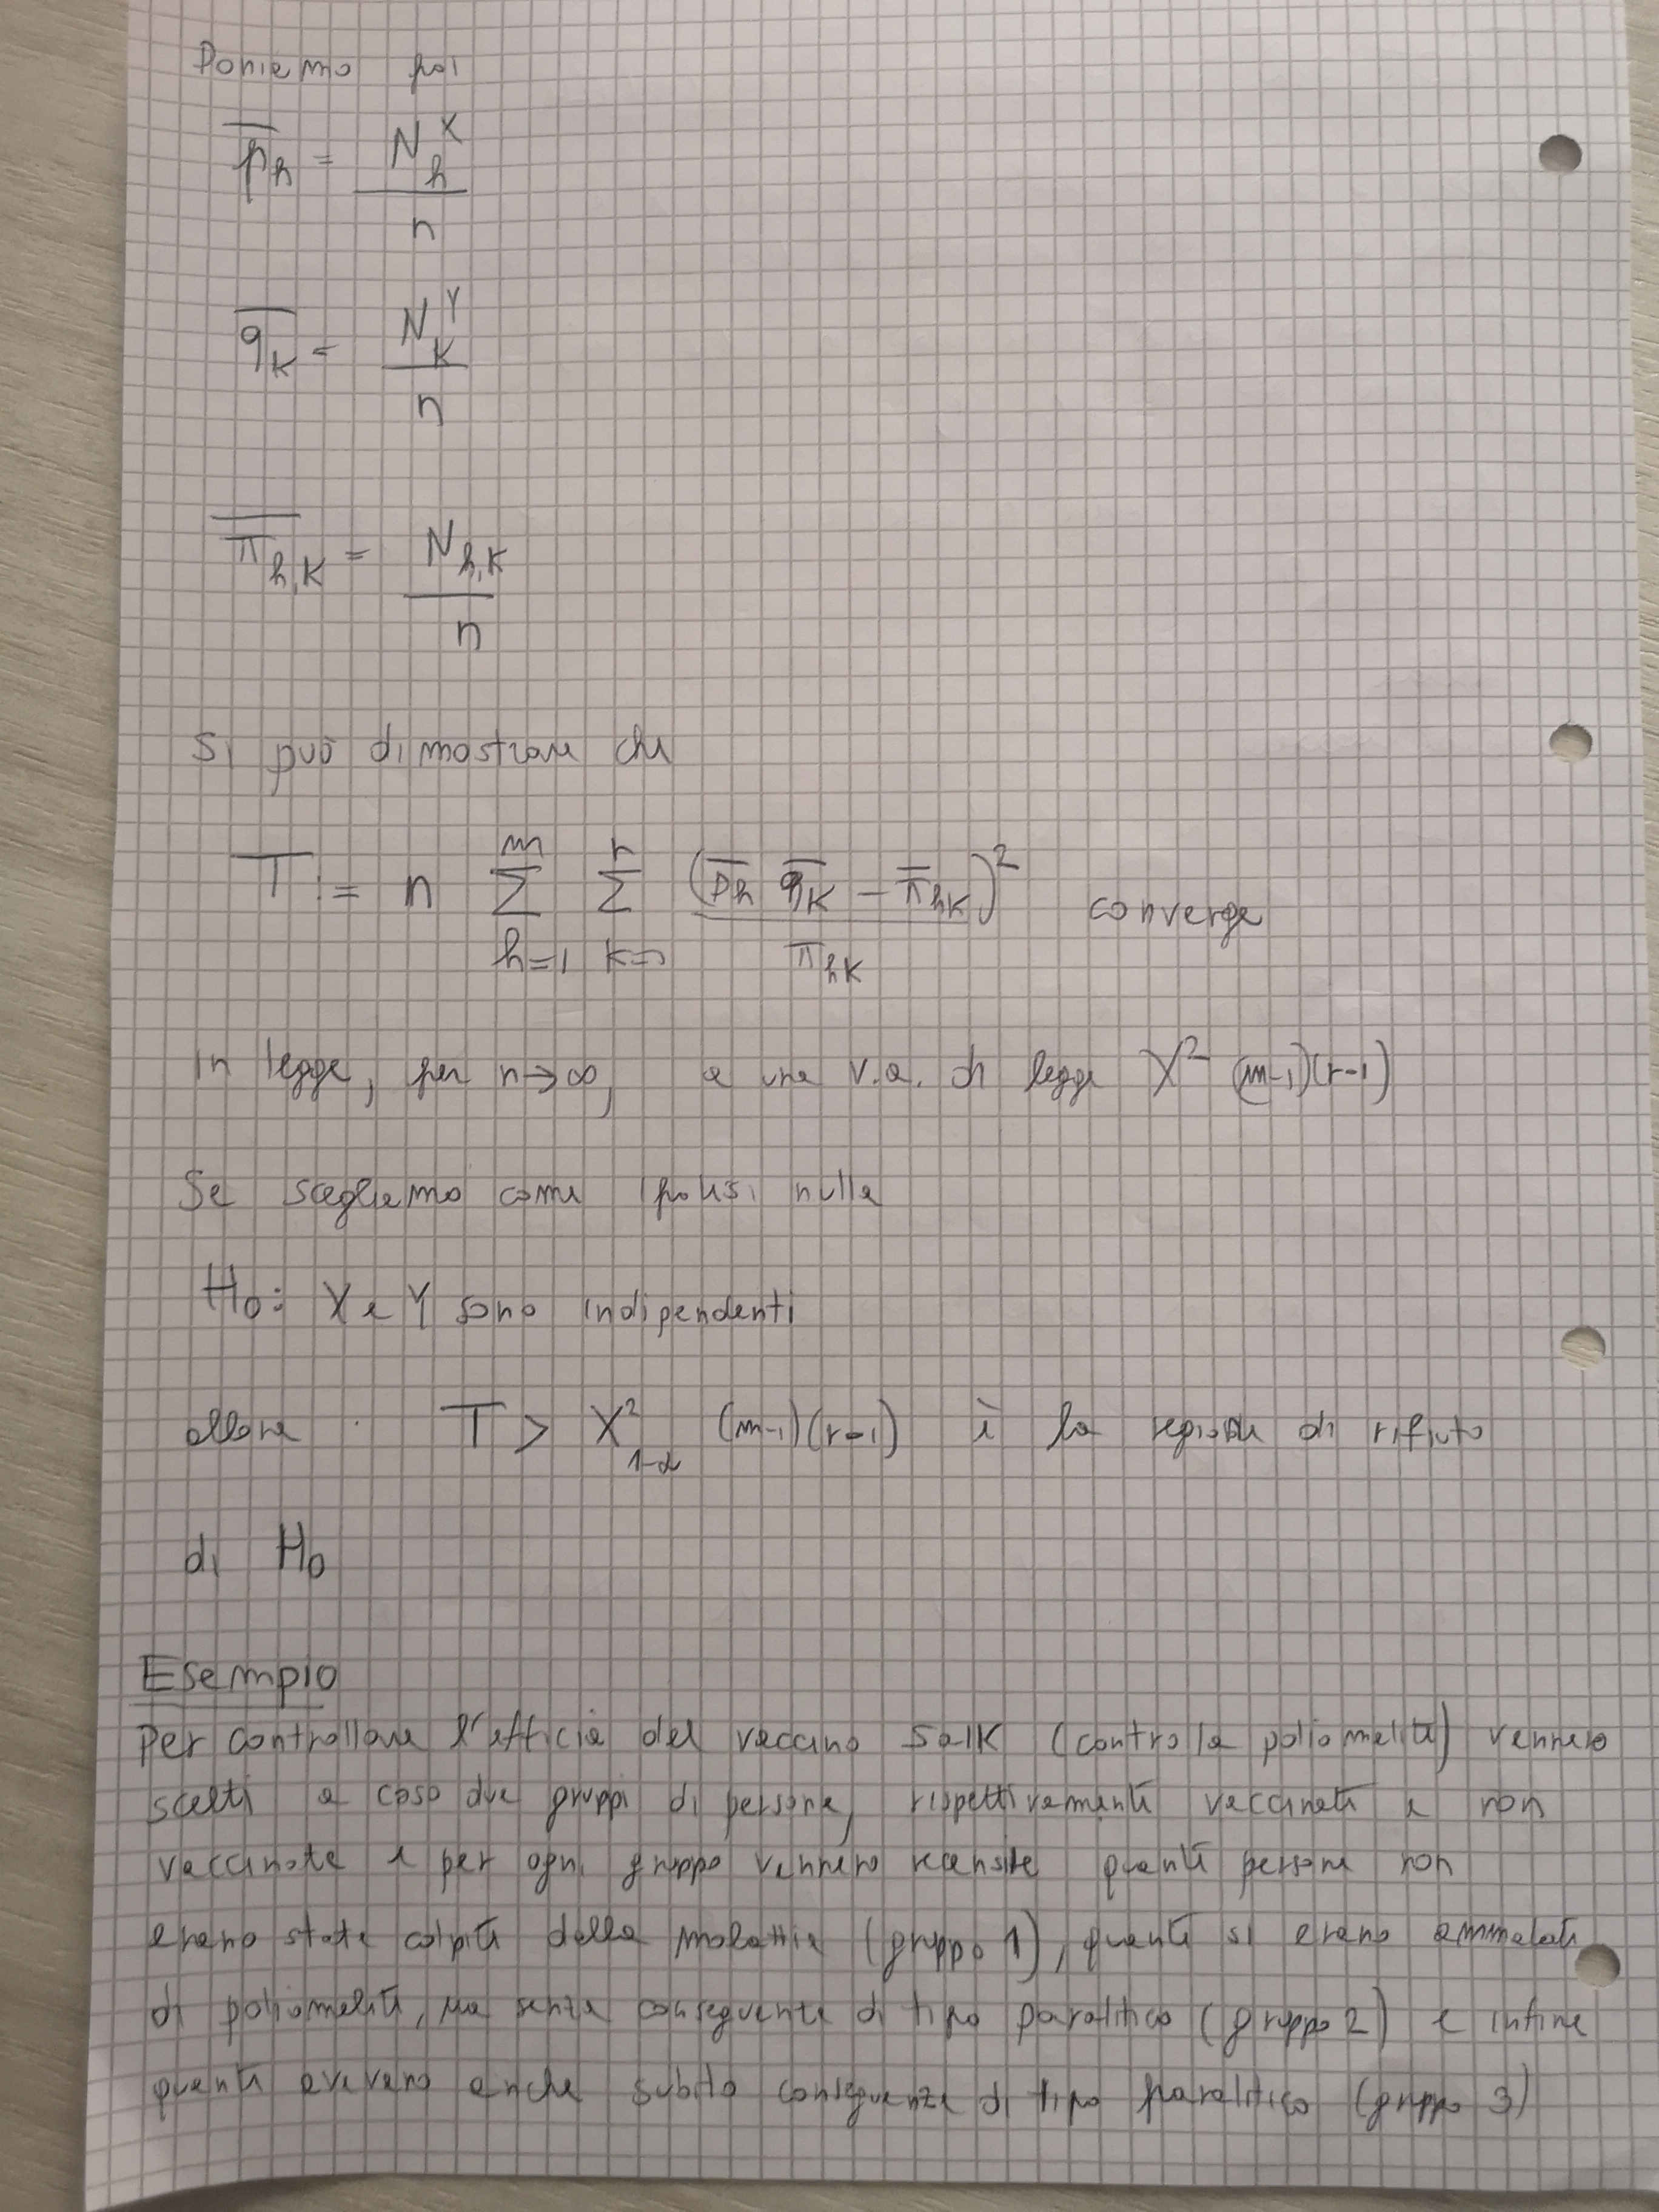 Poniamo poi
p̄_h = N_h^X / n
q̄_k = N_k^Y / n
π̄_{h,k} = N_{h,k} / n
Si può dimostrare che
T := n Σ_{h=1}^{m} Σ_{k=1}^{r} (p̄_h q̄_k − π̄_{hk})² / π_{hk} converge
in legge, per n→∞, a una v.a. di legge χ² (m-1)(r-1)
Se scegliamo come ipotesi nulla
H₀: X e Y sono indipendenti
allora T > χ²_{1-α} (m-1)(r-1) è la regione di rifiuto
di H₀
Esempio
Per controllare l'efficia del vaccino Salk (contro la poliomelite) vennero
scelti a caso due gruppi di persone, rispettivamente vaccinate e non
vaccinate e per ogni gruppo vennero recensite quante persone non
erano state colpite dalla malattia (gruppo 1), quanti si erano ammalati
di poliomelite, ma senza conseguenze di tipo paralitico (gruppo 2) e infine
quanti avevano anche subito conseguenze di tipo paralitico (gruppo 3)